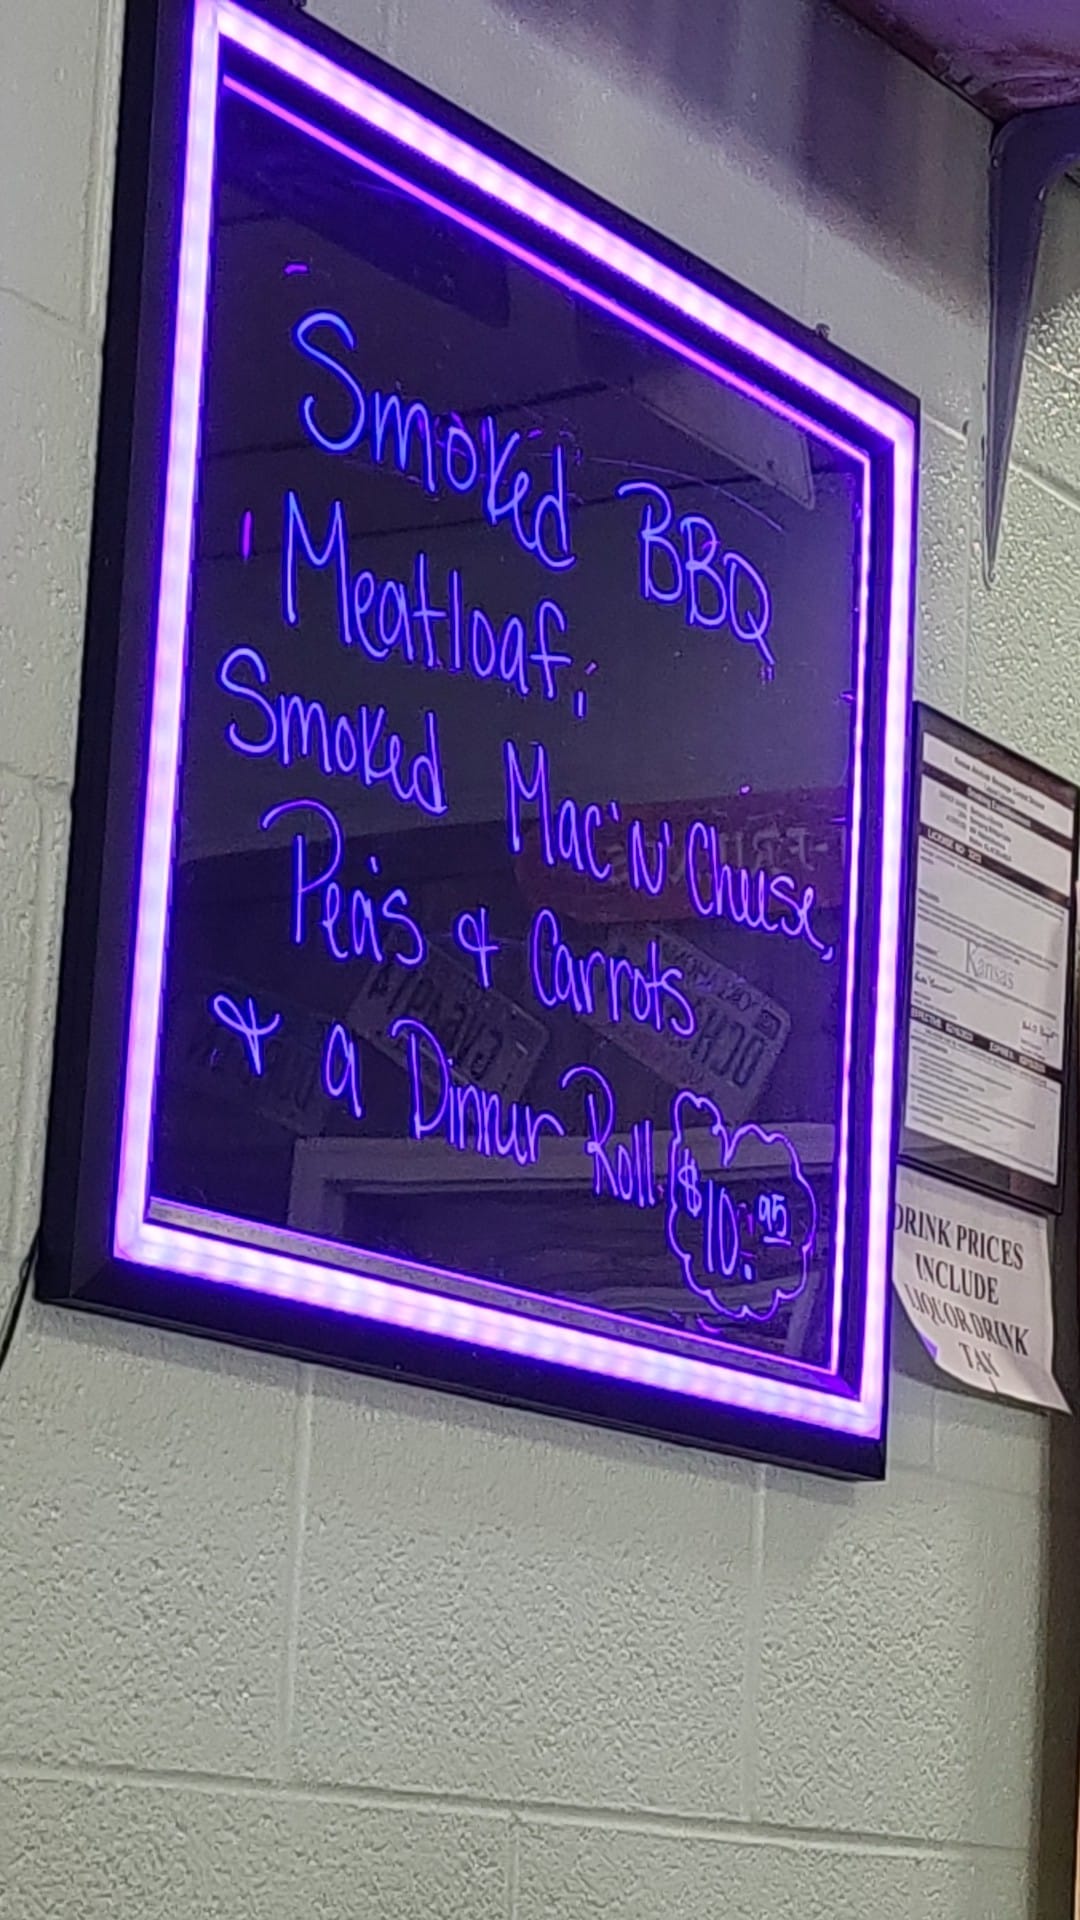 Smoked BBQ
Meatloaf,
Smoked Mac'N' Cheese,
Pea's & Carrots
& a Dinner Roll $10.95
Kansas
DRINK PRICES
INCLUDE
LIQUOR DRINK
TAX